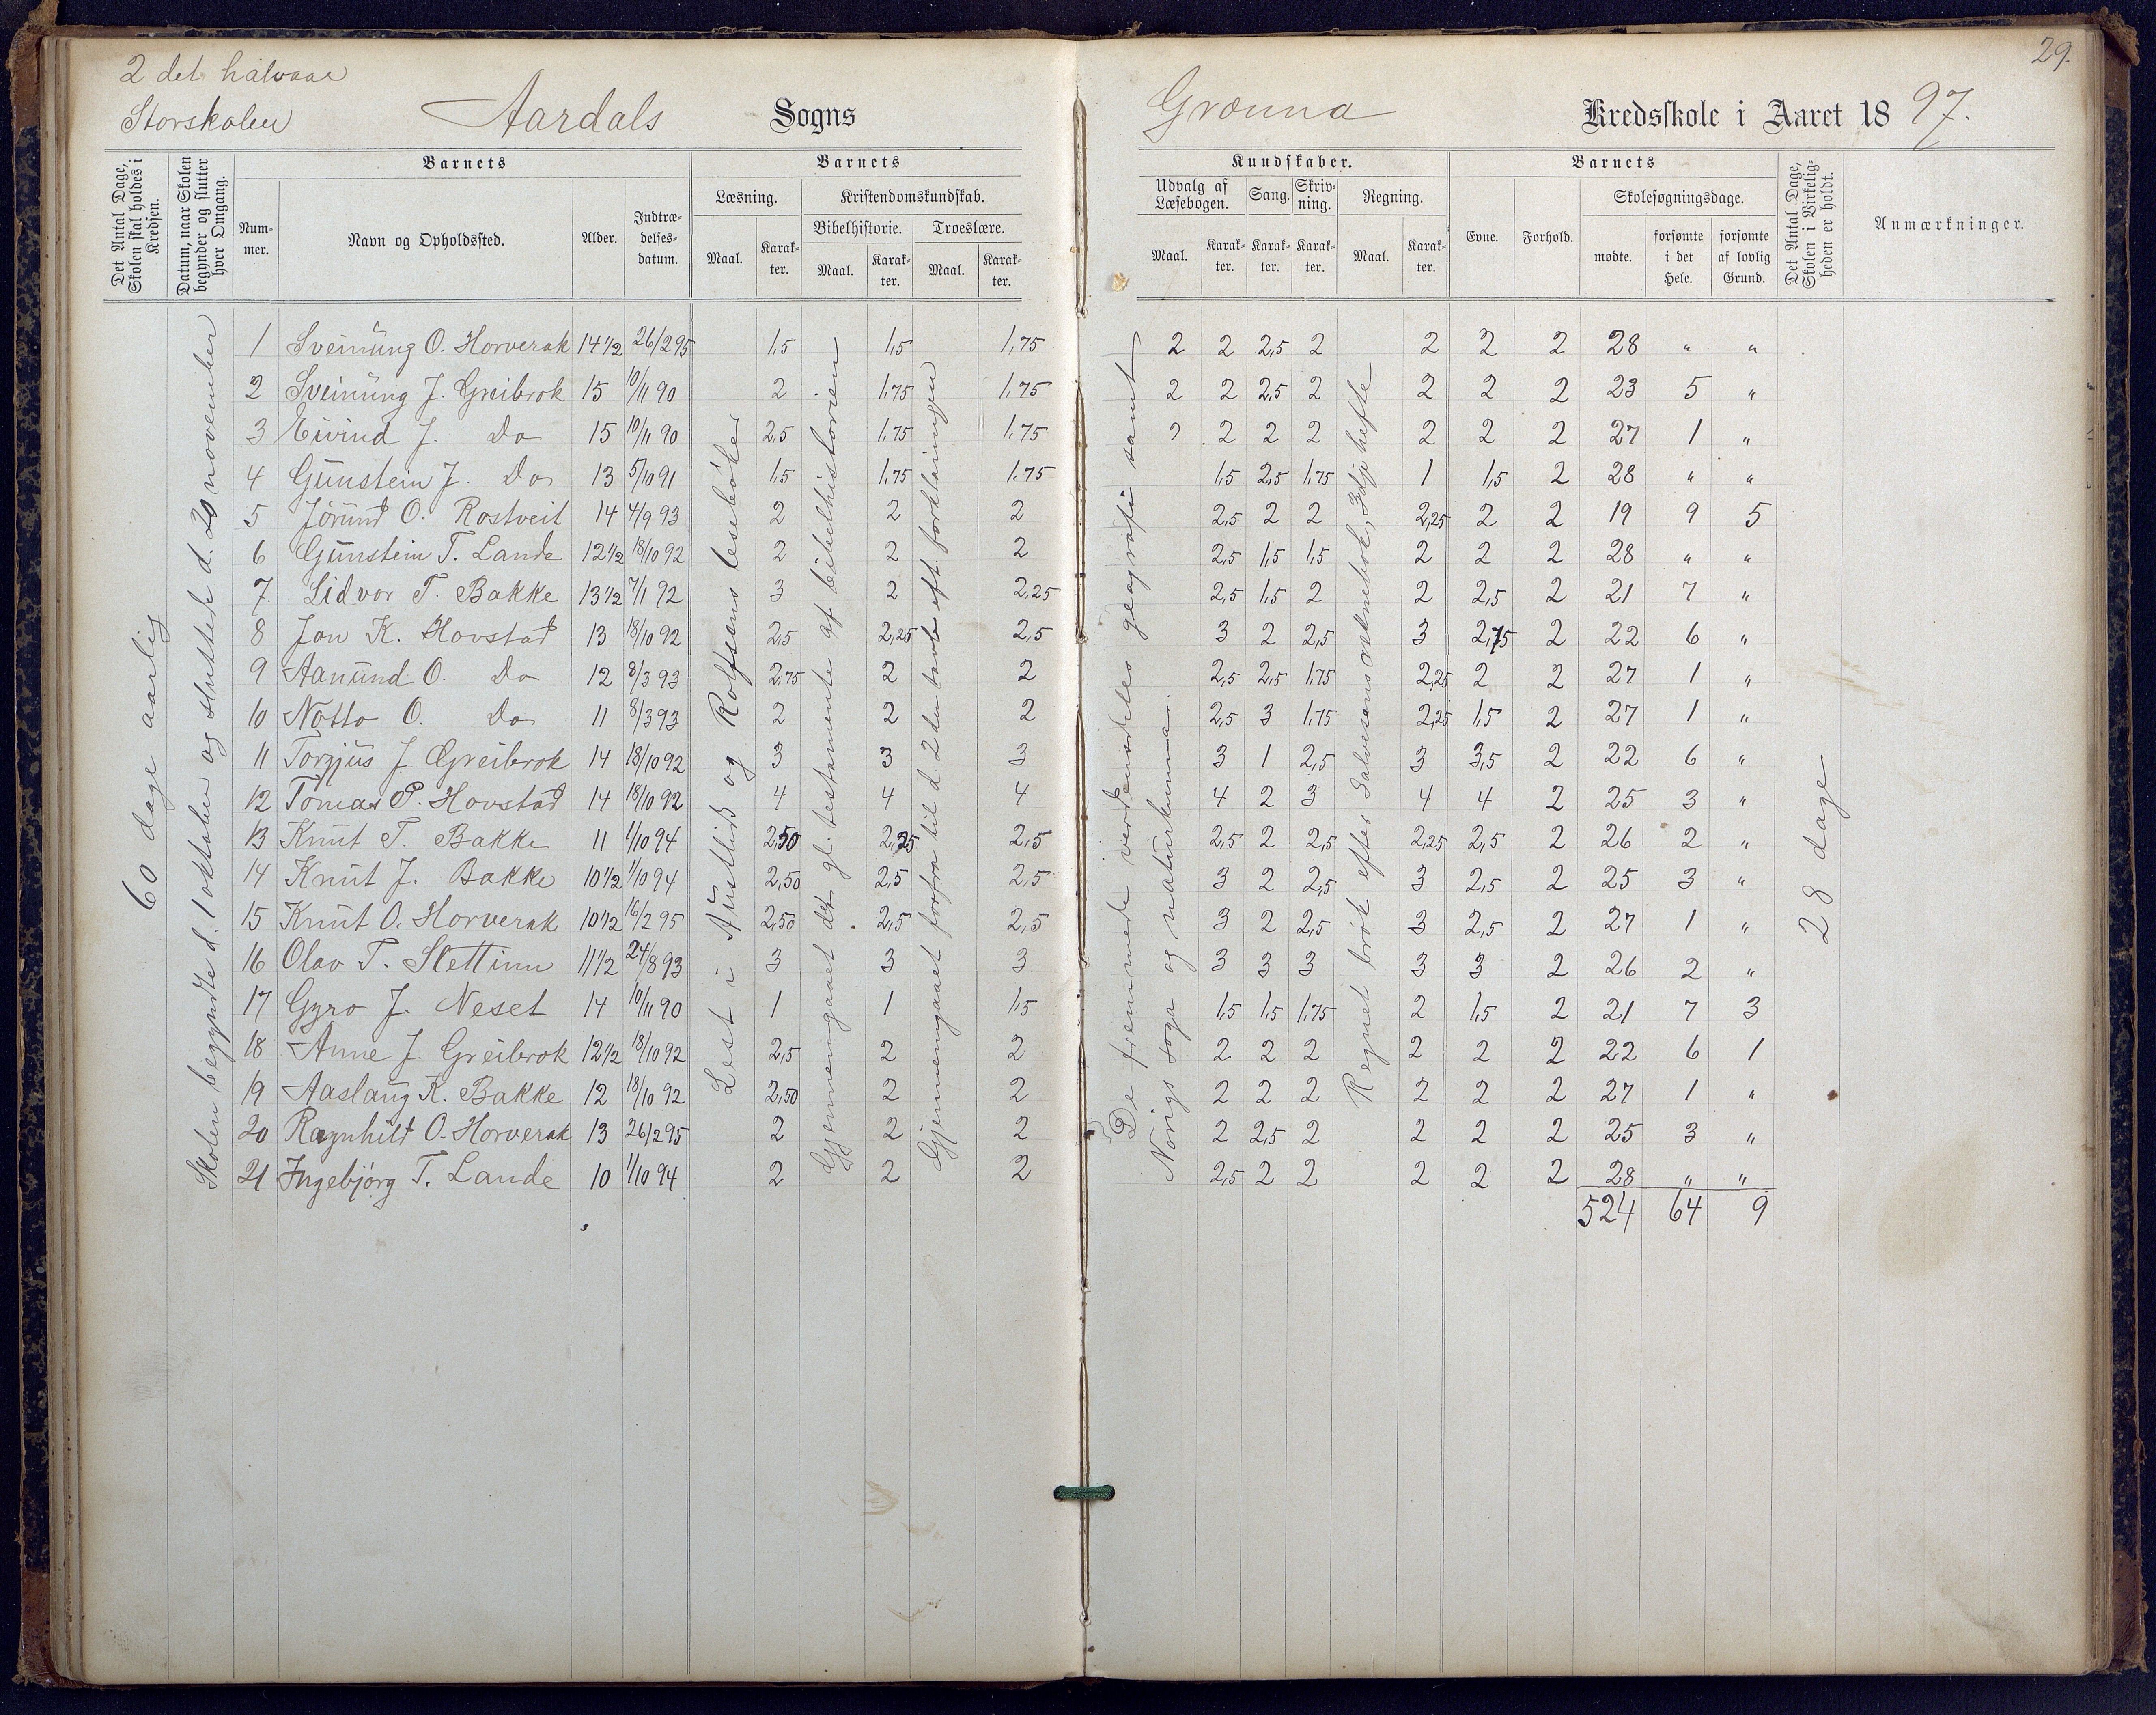 2 det halvaar
29.
Storskolen Aardals Sogns Grønna Kredsskole i Aaret 1897.
Det Antal Dage, Skolen skal holdes i Kredsen.
Datum, naar Skolen begynder og slutter hver Omgang.
Barnets
Nummer.
Navn og Opholdssted.
Alder.
Indtrædelsesdatum.
Barnets
Læsning.
Maal.
Karakter.
Kristendomskundskab.
Bibelhistorie.
Maal.
Karakter.
Troeslære.
Maal.
Karakter.
Kundskaber.
Udvalg af Læsebogen.
Maal.
Karakter.
Sang.
Karakter.
Skrivning.
Karakter.
Regning.
Maal.
Karakter.
Barnets
Evne.
Forhold.
Skolesøgningsdage.
mødte.
forsømte i det Hele.
forsømte af lovlig Grund.
Det Antal Dage, Skolen i Virkeligheden er holdt.
Anmærkninger.
60 dage aarlig
Skolen begyndte d. 1 oktober og sluttede d. 20 november
Lest i Austlids og Rolfsens lesebøker
Gjennemgaaet det gl. testamente af bibelhistorien
Gjennemgaaet forfra til d 2den tavle eft. forklaringen
De fremmede verdensdeles geografi samt
Norigs soga og naturkunna.
Regnet brøk efter Salvesens reknebok, 3dje hefte
28 dage
1 Sveinung O. Horverak 14 1/2 26/2 95 1,5 1,5 1,75 2 2 2,5 2 2 2 2 28 " "
2 Sveinung J. Greibrok 15 10/11 90 2 1,75 1,75 2 2 2,5 2 2 2 2 23 5 "
3 Eivind J. Do 15 10/11 90 2,5 1,75 1,75 2 2 2 2 2 2 2 27 1 "
4 Gunstein J. Do 13 5/10 91 1,5 1,75 1,75 1,5 2,5 1,75 1 1,5 2 28 " "
5 Jørund O. Rostveit 14 4/9 93 2 2 2 2,5 2 2 2,25 2 2 19 9 5
6 Gunstein T. Lande 12 1/2 18/10 92 2 2 2 2,5 1,5 1,5 2 2 2 28 " "
7. Lidvor T. Bakke 13 1/2 7/1 92 3 2 2,25 2,5 1,5 2 2 2,5 2 21 7 "
8 Jon K. Hovstad 13 18/10 92 2,5 2,25 2,5 3 2 2,5 3 2,75 2 22 6 "
9 Aanund O. Do 12 8/3 93 2,75 2 2 2,5 2,5 1,75 2,25 2 2 27 1 "
10 Notto O. Do 11 8/3 93 2 2 2 2,5 3 1,75 2,25 1,5 2 27 1 "
11 Torgjus J. Greibrok 14 18/10 92 3 3 3 3 1 2,5 3 3,5 2 22 6 "
12 Tomas P. Hovstad 14 18/10 92 4 4 4 4 2 3 4 4 2 25 3 "
13 Knut T. Bakke 11 1/10 94 2,50 2,25 2,5 2,5 2 2,5 2,25 2,5 2 26 2 "
14 Knut J. Bakke 10 1/2 1/10 94 2,50 2,5 2,5 3 2 2,5 3 2,5 2 25 3 "
15 Knut O. Horverak 10 1/2 16/2 95 2,50 2,5 2,5 3 2 2,5 3 2,5 2 27 1 "
16 Olav T. Slettinn 11 1/2 24/8 93 3 3 3 3 3 3 3 3 2 26 2 "
17 Gyro J. Neset 14 10/11 90 1 1 1,5 1,5 1,5 1,75 2 1,5 2 21 7 3
18 Anne J. Greibrok 12 1/2 18/10 92 2,5 2 2 2 2 2 2 2 2 22 6 1
19 Aaslaug K. Bakke 12 18/10 92 2,50 2 2 2 2 2 2 2 2 27 1 "
20 Ragnhild O. Horverak 13 26/2 95 2 2 2 2 2,5 2 2 2 2 25 3 "
21 Ingebjørg T. Lande 10 1/10 94 2 2 2 2,5 2 2 2 2 2 28 " "
524 64 9